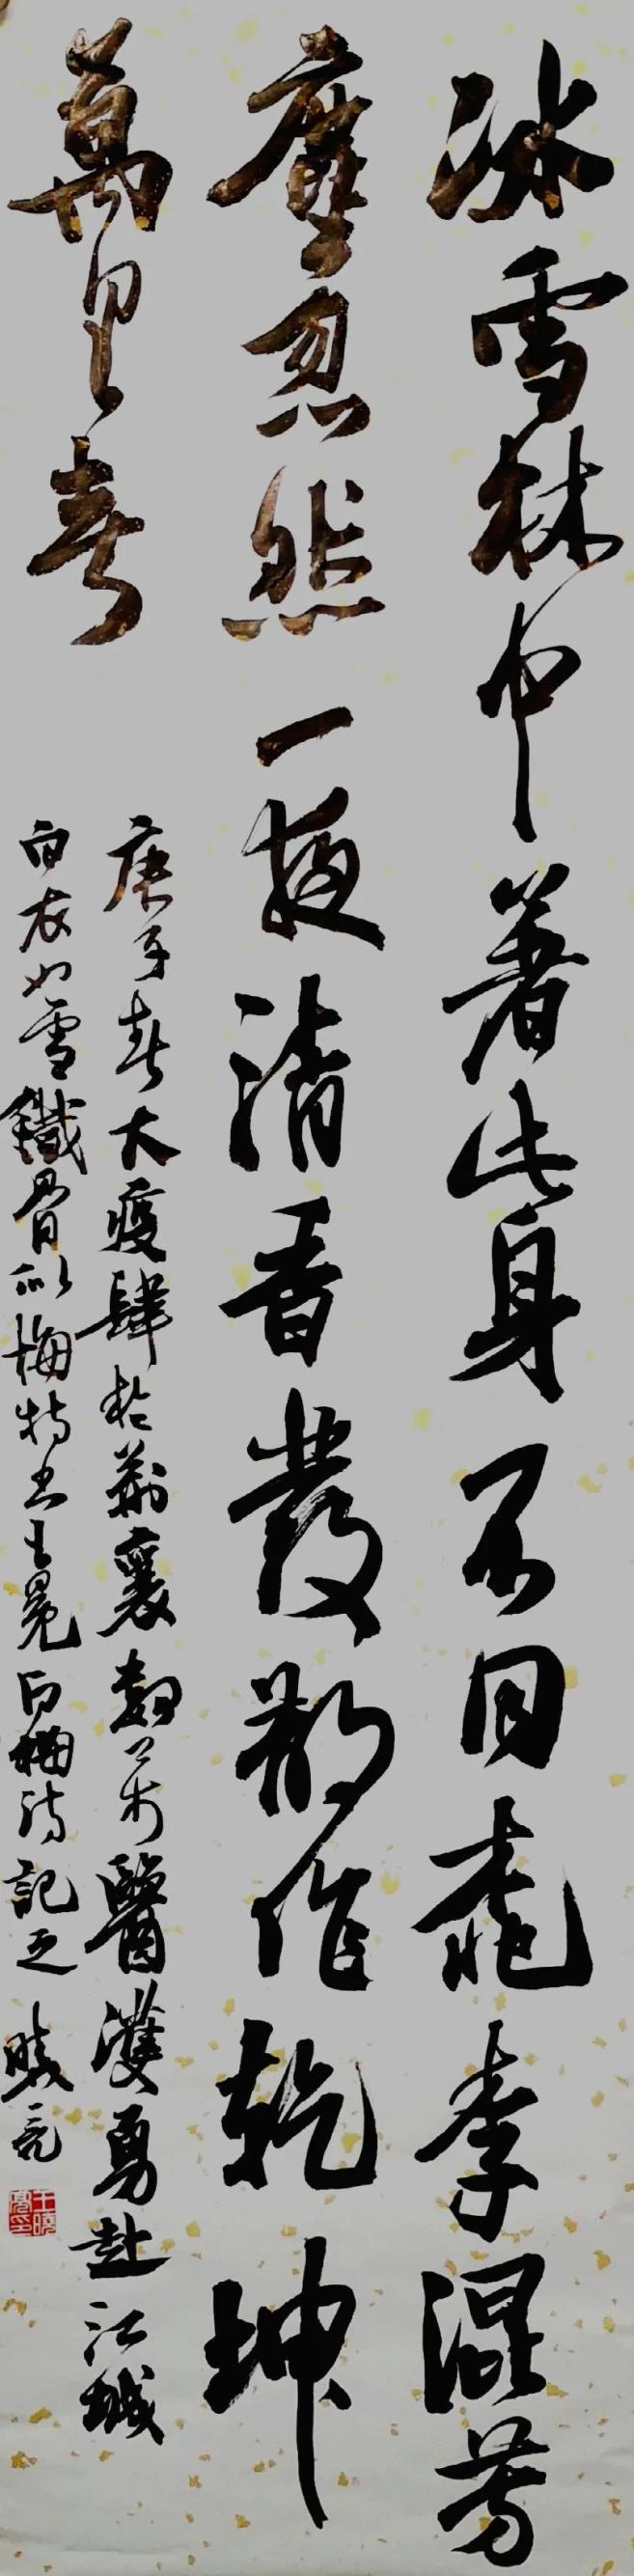 冰雪林中著此身不同桃李混芳
塵忽然一夜清香發散作乾坤
萬里春
庚子春大疫肆於荊襄數萬醫護勇赴江城
白衣如雪鐵骨似梅特書王冕白梅詩記之曉亮
王曉亮印